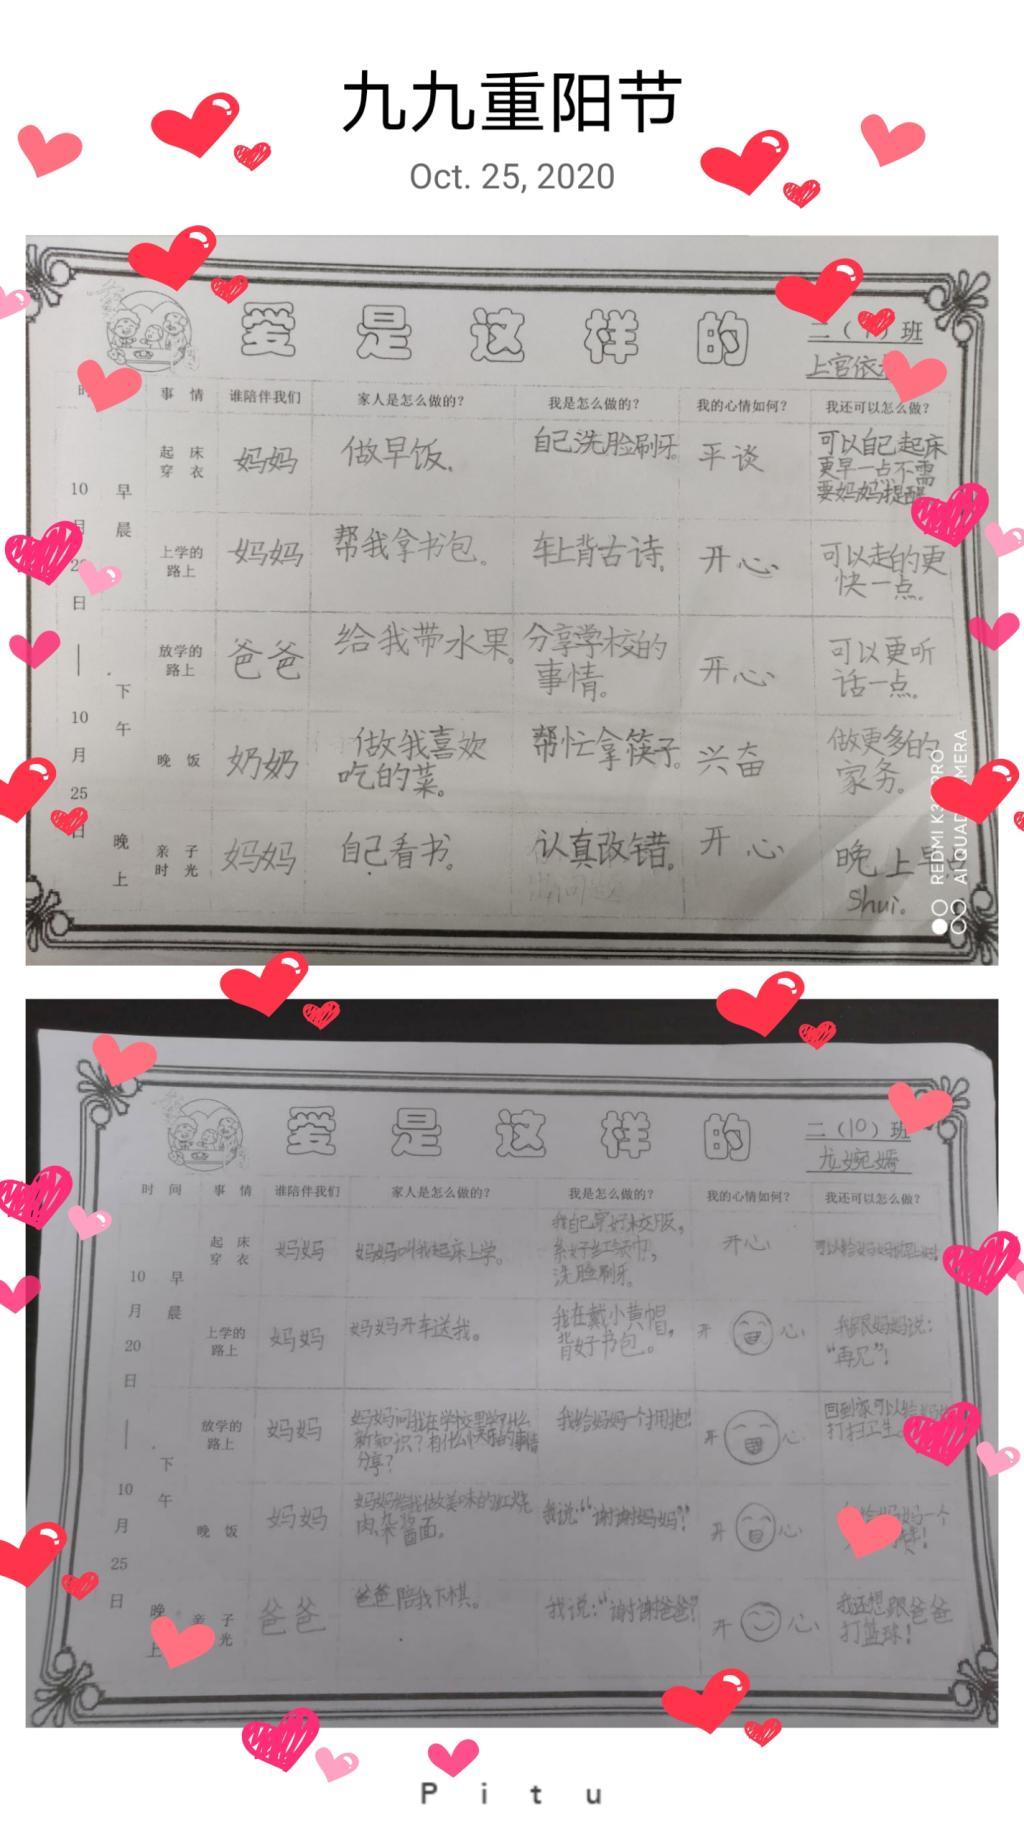 九九重阳节
Oct. 25, 2020
爱是这样的
二（ ）班
上官依
事情 谁陪伴我们 家人是怎么做的？ 我是怎么做的？ 我的心情如何？ 我还可以怎么做？
10月2 日—10月25日
早晨
起床穿衣 妈妈 做早饭。 自己洗脸刷牙。 平谈 可以自己起床
更早一点不需
要妈妈提醒
上学的路上 妈妈 帮我拿书包。 车上背古诗。 开心 可以走的更
快一点。
下午
放学的路上 爸爸 给我带水果。 分享学校的
事情。 开心 可以更听
话一点。
晚饭 奶奶 做我喜欢
吃的菜。 帮忙拿筷子。 兴奋 做更多的
家务。
晚上
亲子时光 妈妈 自己看书。 认真改错。 开心 晚上早点
Shui.
REDMI K30 PRO
AI QUAD CAMERA
爱是这样的
二（10）班
龙婉嫣
时间 事情 谁陪伴我们 家人是怎么做的？ 我是怎么做的？ 我的心情如何？ 我还可以怎么做？
10月20日—10月25日
早晨
起床穿衣 妈妈 妈妈叫我起床上学。 我自己穿好校服，
系好红领巾，
洗脸刷牙。 开心
上学的路上 妈妈 妈妈开车送我。 我在戴小黄帽，
背好书包。 开心 我跟妈妈说：
“再见”！
下午
放学的路上 妈妈 妈妈问我在学校里学了什么
新知识？有什么快乐的事情
分享？ 我给妈妈一个拥抱！ 开心 回到家可以给妈妈
打扫卫生
晚饭 妈妈 妈妈给我做美味的红烧
肉、杂酱面。 我说：“谢谢妈妈”！ 开心 给妈妈一个
晚上
亲子 光 爸爸 爸爸陪我下棋。 我说：“谢谢爸爸” 开心 我还想跟爸爸
打篮球！
Pitu